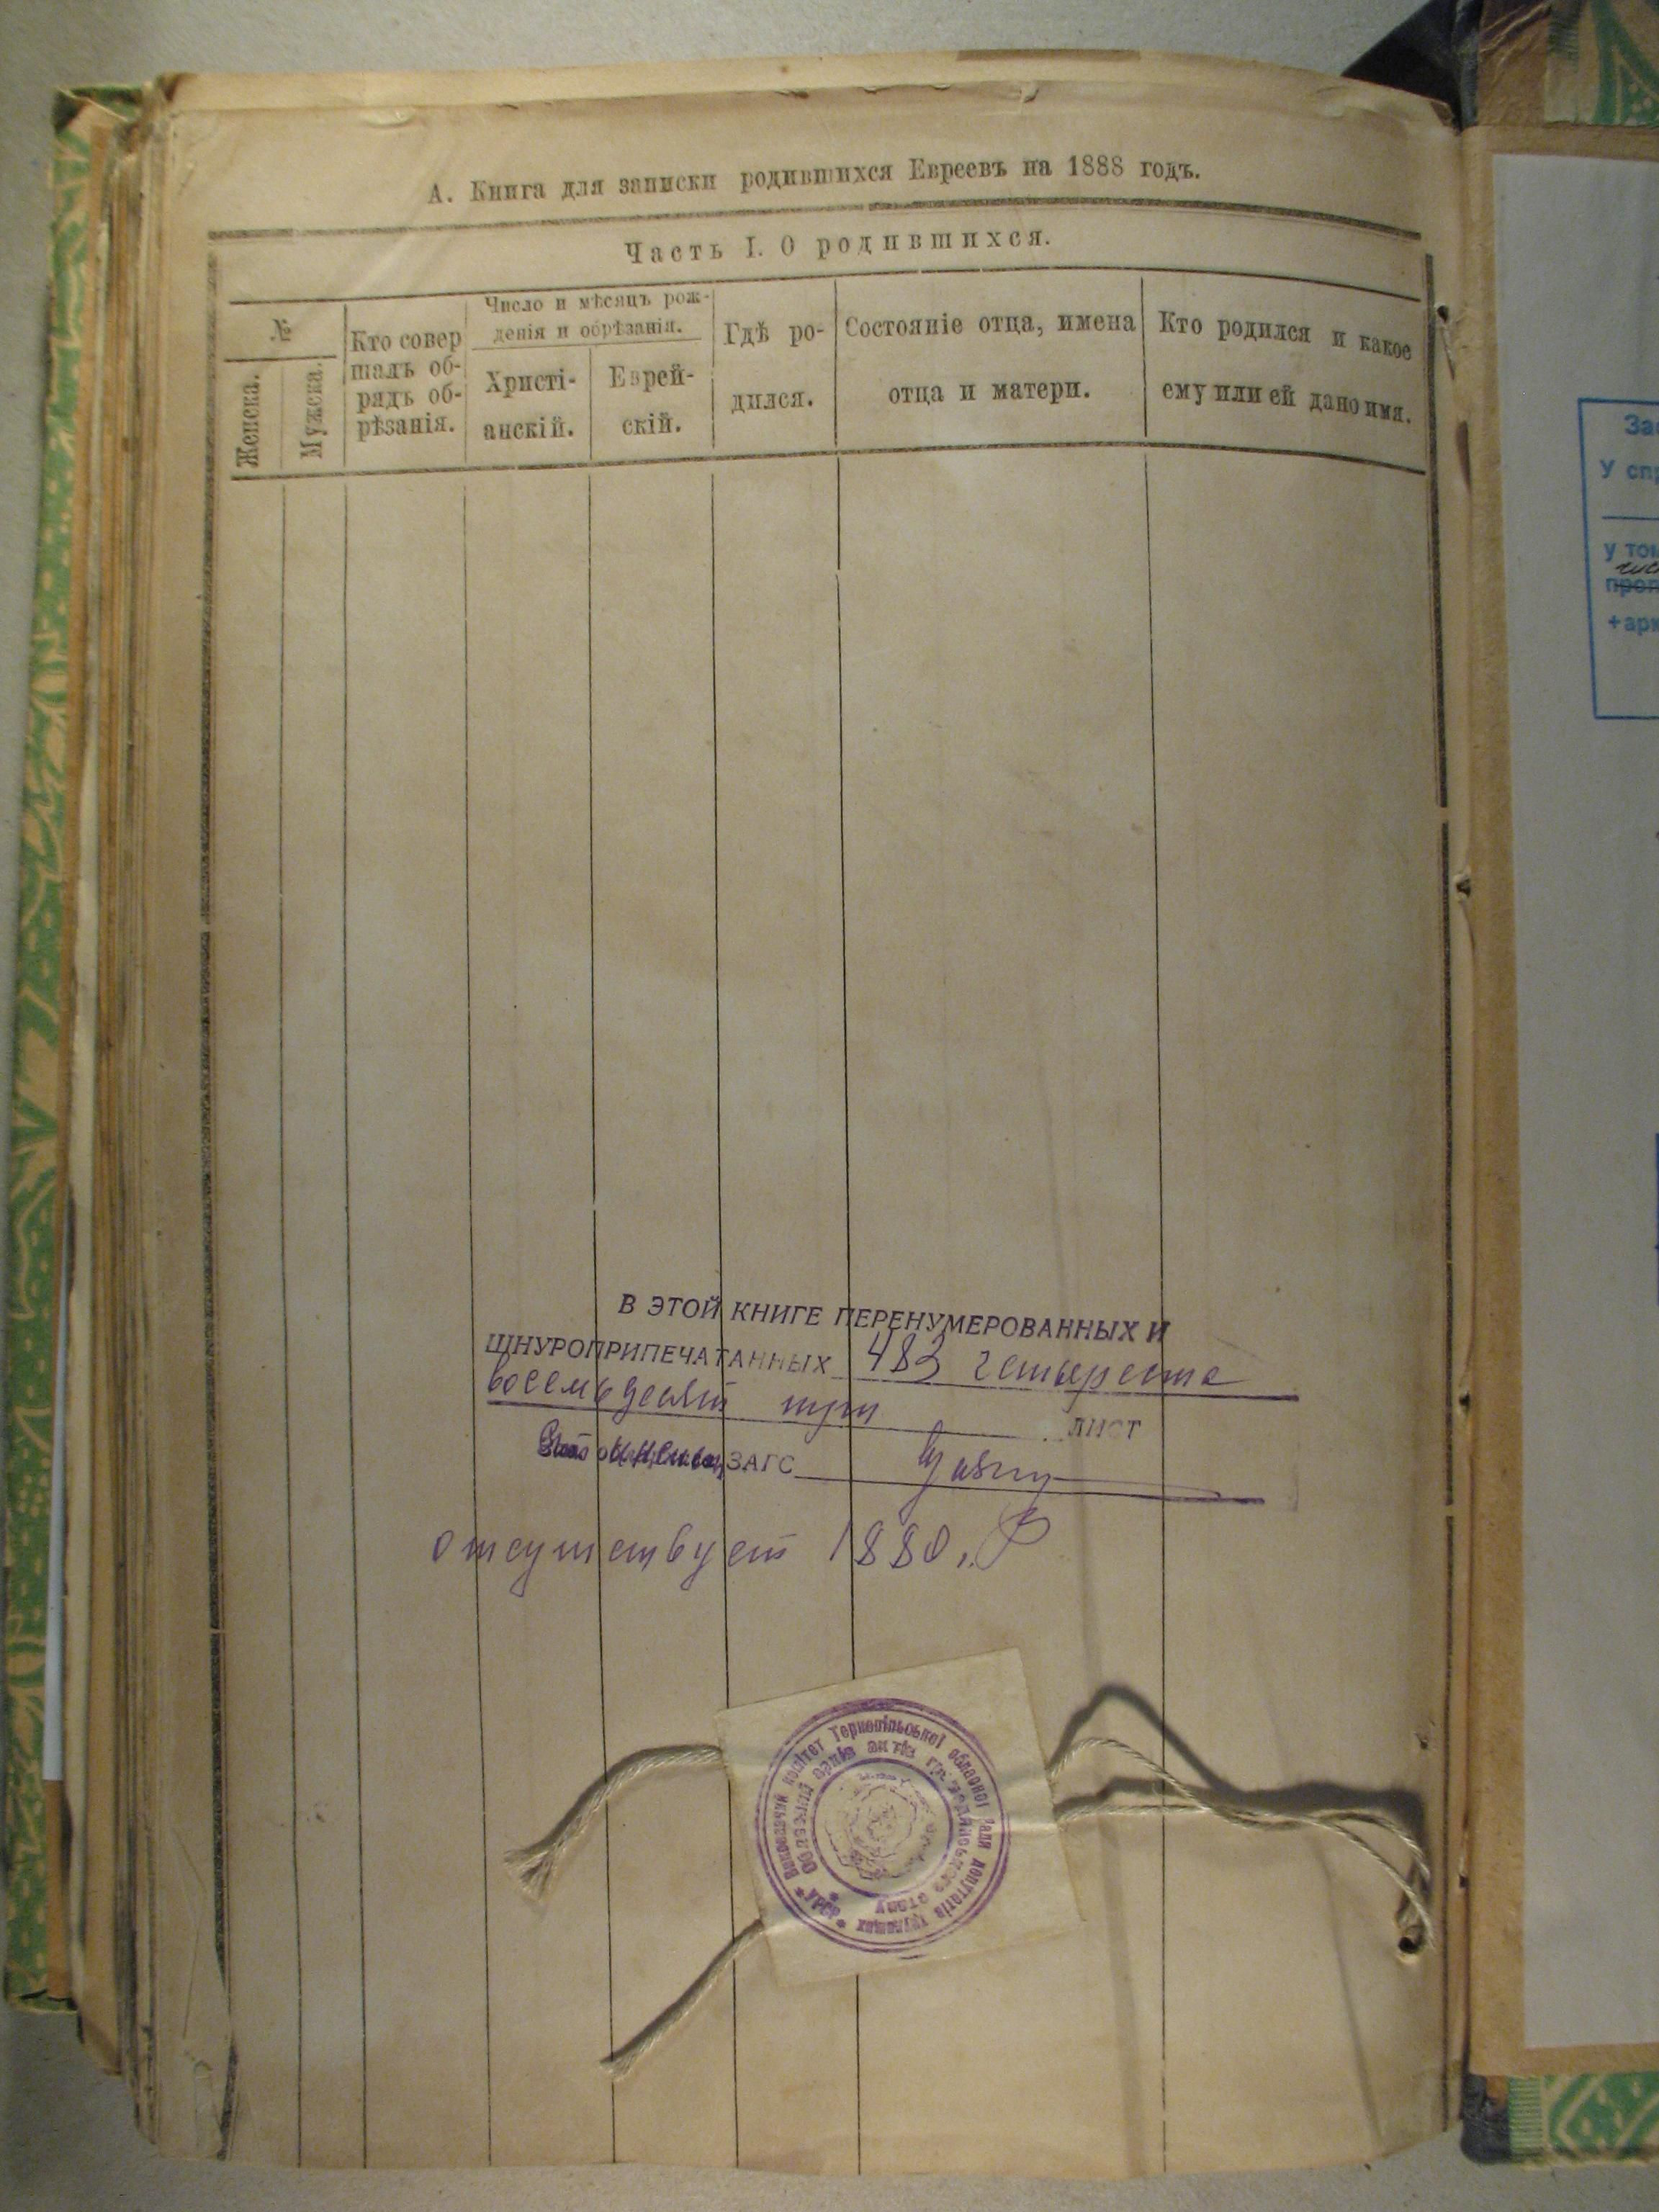 А. Книга для записки родившихся Евреевъ на 1888 годъ.
Часть I. О родившихся.
№
Женска.
Мужска.
Кто совер
шалъ об-
рядъ об-
рѣзанія.
Число и мѣсяцъ рож-
денія и обрѣзанія.
Христі-
анскій.
Еврей-
скій.
Гдѣ ро-
дился.
Состояніе отца, имена
отца и матери.
Кто родился и какое
ему или ей дано имя.
В ЭТОЙ КНИГЕ ПЕРЕНУМЕРОВАННЫХ И
ШНУРОПРИПЕЧАТАННЫХ 483 четыреста
восемьдесят три ЛИСТ
ЗАГС
отсутствует 1880 г.
Виконавчий комітет Тернопільської обласної Ради депутатів трудящих
Обласний архів актів громадянського стану
* УРСР *
За
У сп
у том
+арк